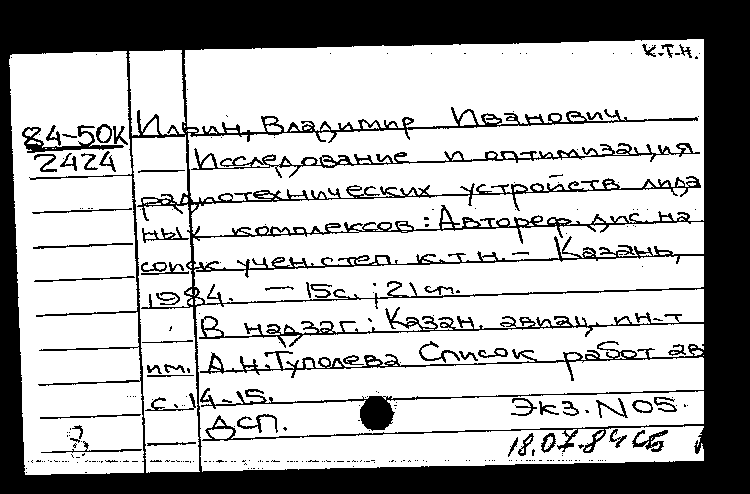 К.Т.Н.
84-50К
2424
Ильин, Владимир Иванович.
Исследование и оптимизация
радиотехнических устройств лида
ных комплексов: Автореф. дис. на
соиск. учен. степ. к.т.н. - Казань,
1984. - 15с.; 21см.
В надзаг.: Казан. авиац. ин-т
им. А.Н.Туполева Список работ ав
с. 14-15.
ДСП.
Экз. N 05.
8
18.07.84